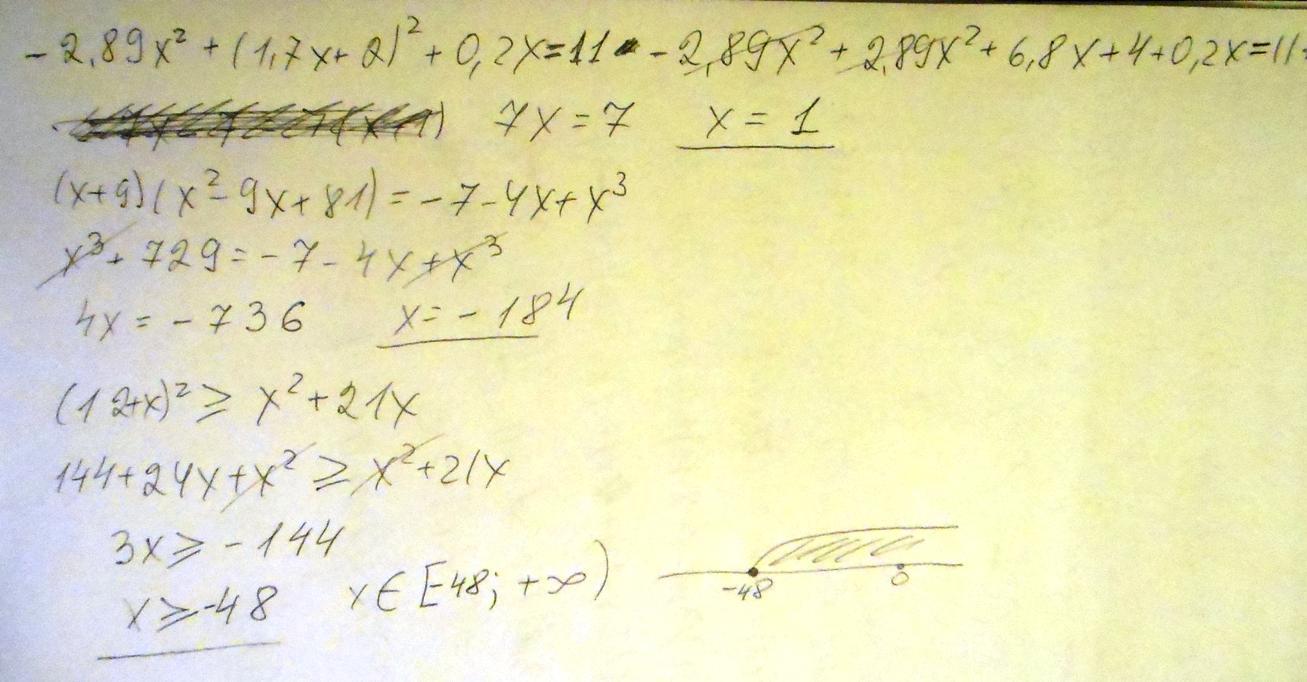 - 2,89x² + (1,7x + 2)² + 0,2x = 11 - 2,89x² + 2,89x² + 6,8x + 4 + 0,2x = 11
7x = 7 x = 1
(x+9)(x² - 9x + 81) = -7 - 4x + x³
x³ + 729 = -7 - 4x + x³
4x = -736 x = -184
(12+x)² ≥ x² + 21x
144 + 24x + x² ≥ x² + 21x
3x ≥ -144
x ≥ -48 x ∈ [-48; +∞) -48 0